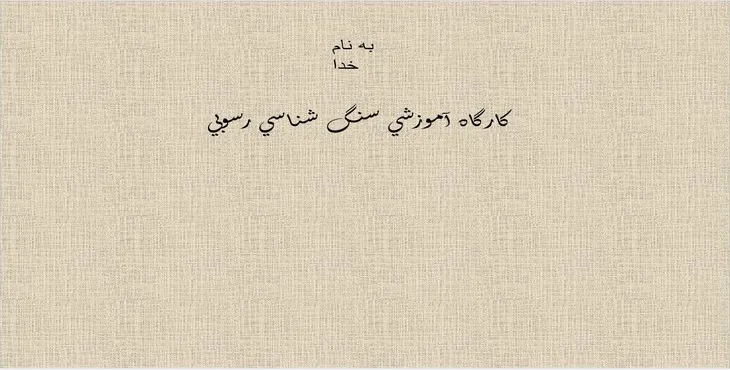 به نام
خدا
كارگاه آموزشي سنگ شناسي رسوبي